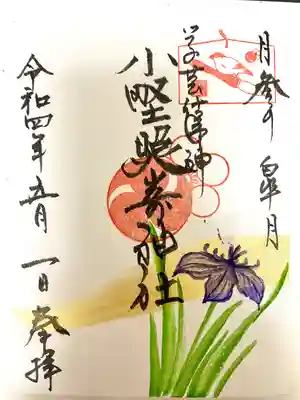 月参り 皐月
学芸
小野照崎神社
令和四年五月一日奉拝